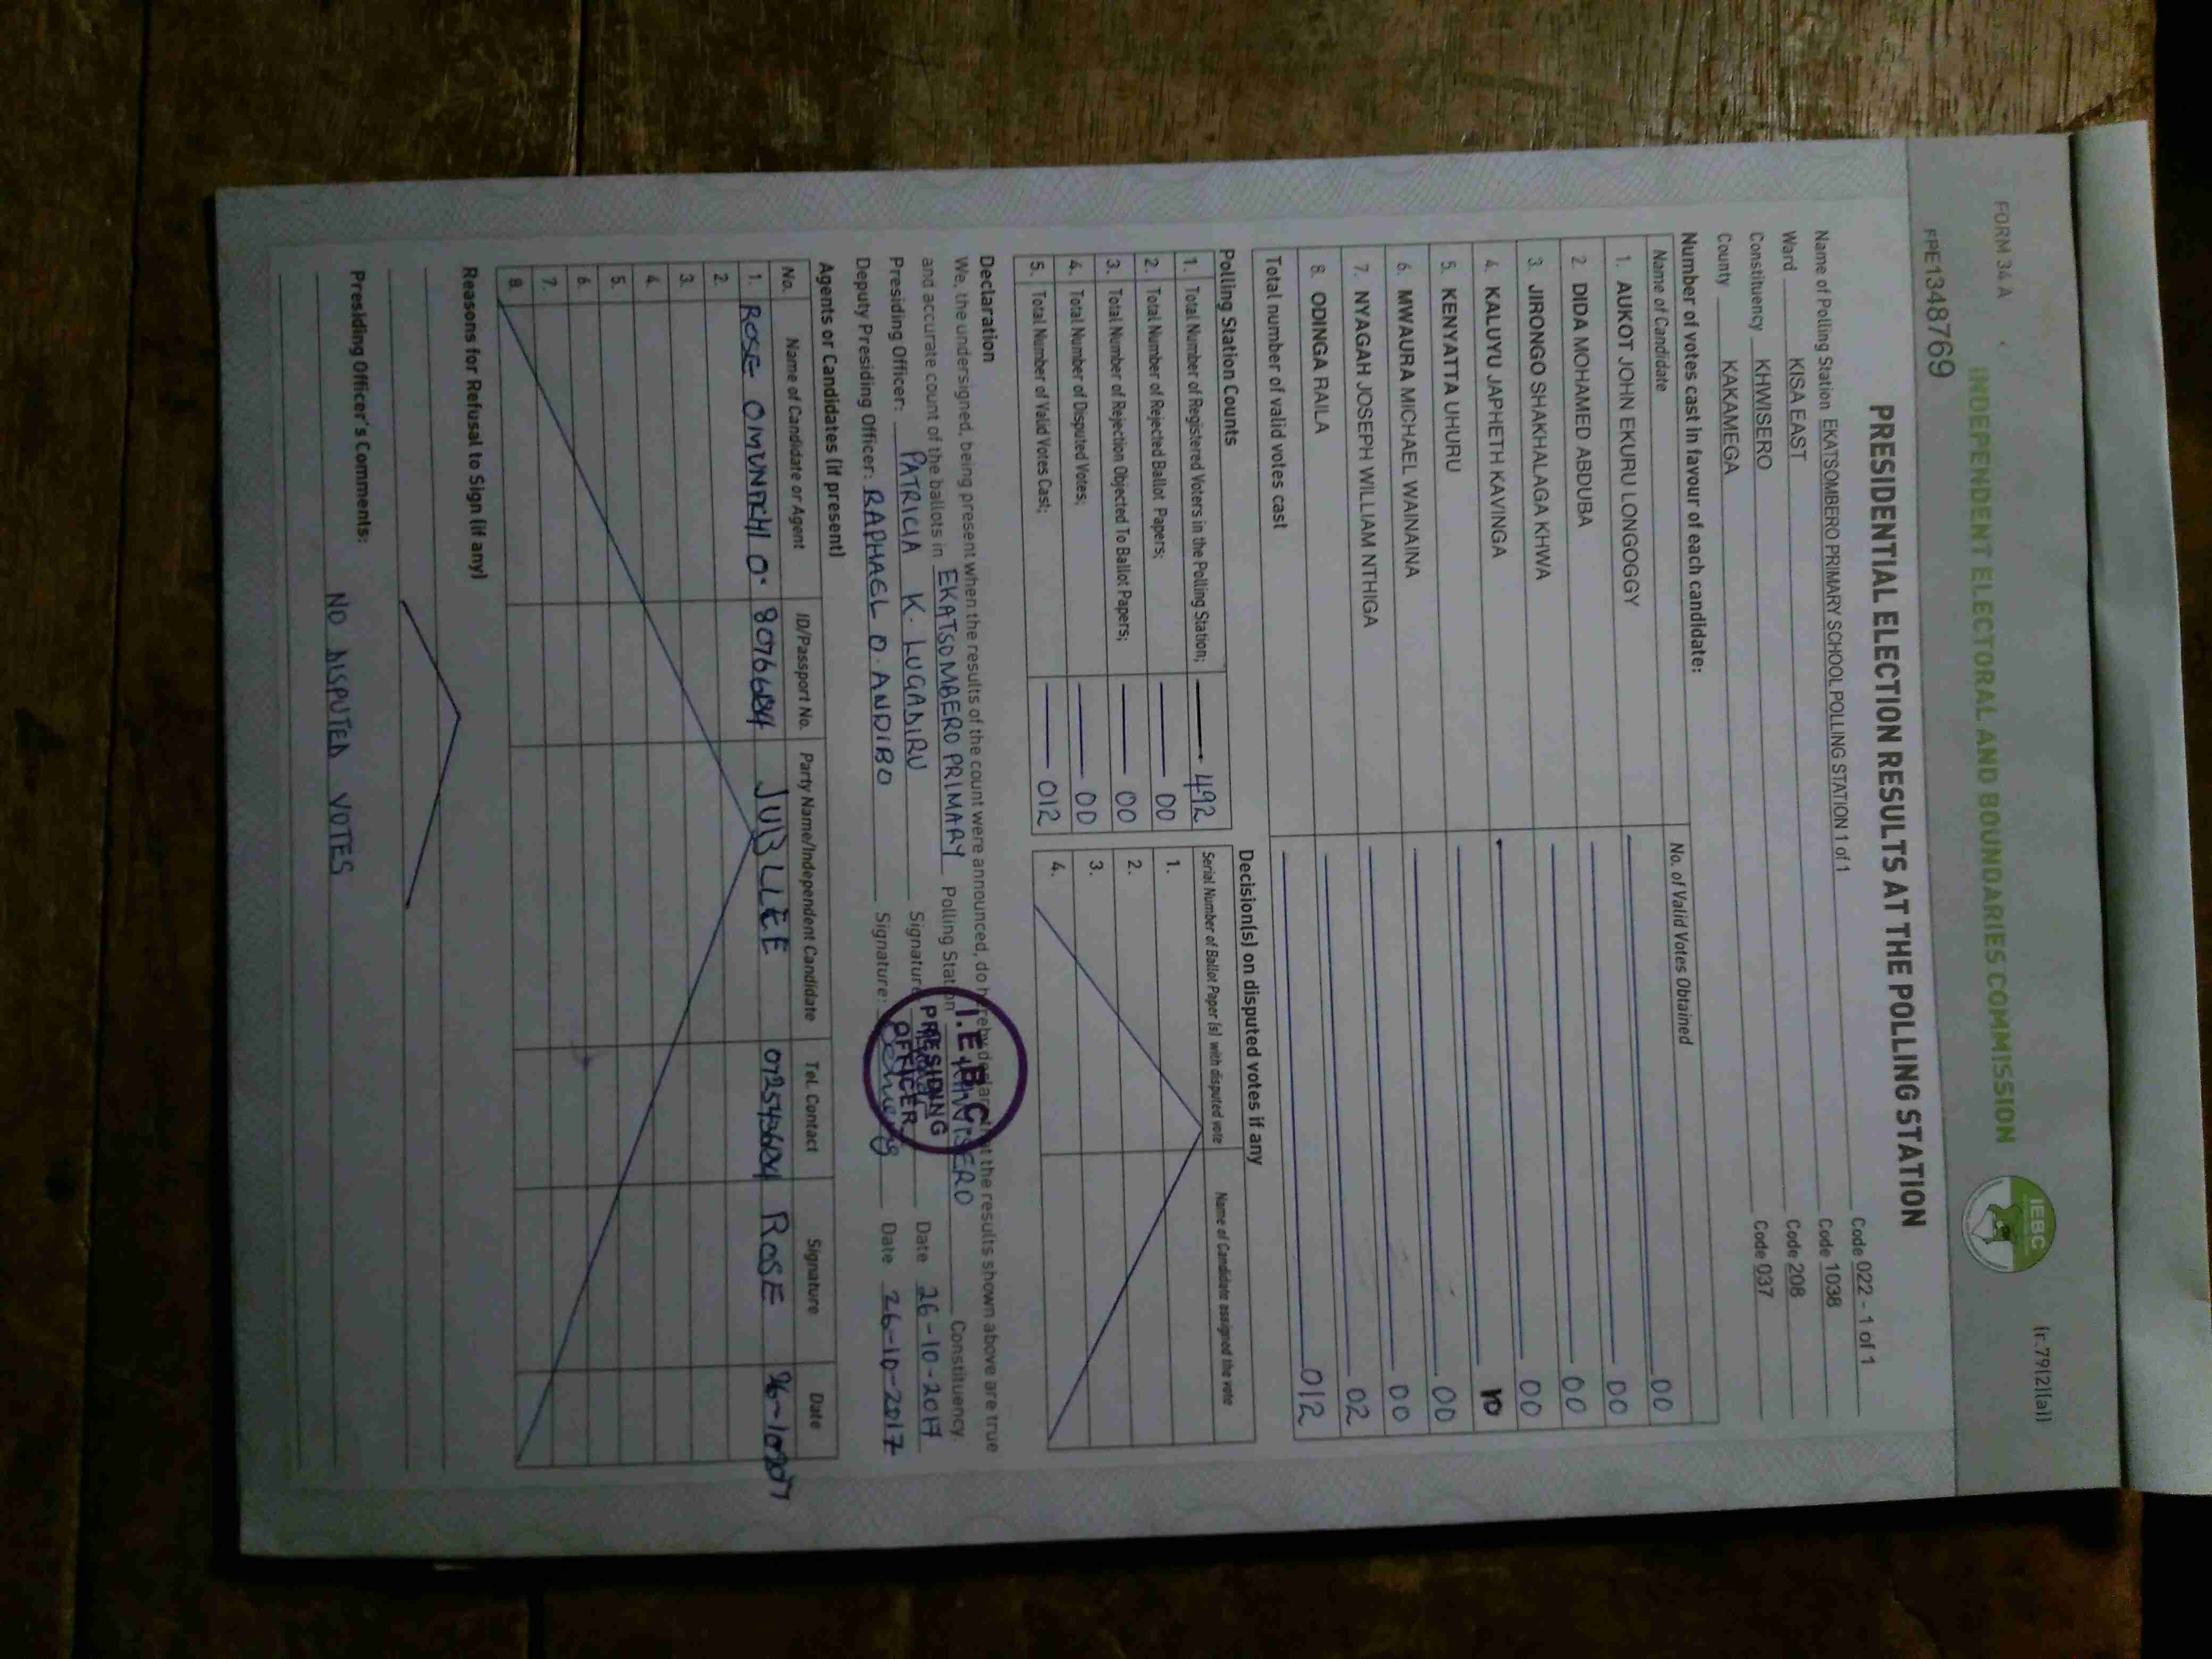 FORM 34 A
(r.79(2)(a))
INDEPENDENT ELECTORAL AND BOUNDARIES COMMISSION
IEBC
FPE1348769
PRESIDENTIAL ELECTION RESULTS AT THE POLLING STATION
Name of Polling Station EKATSOMBERO PRIMARY SCHOOL POLLING STATION 1 of 1 Code 022 - 1 of 1
Ward KISA EAST Code 1038
Constituency KHWISERO Code 208
County KAKAMEGA Code 037
Number of votes cast in favour of each candidate:
Name of Candidate No. of Valid Votes Obtained
1. AUKOT JOHN EKURU LONGOGGY 00
2. DIDA MOHAMED ABDUBA 00
3. JIRONGO SHAKHALAGA KHWA 00
4. KALUYU JAPHETH KAVINGA 00
5. KENYATTA UHURU 10
6. MWAURA MICHAEL WAINAINA 00
7. NYAGAH JOSEPH WILLIAM NTHIGA 00
8. ODINGA RAILA 02
Total number of valid votes cast 012
Polling Station Counts
1. Total Number of Registered Voters in the Polling Station; 492
2. Total Number of Rejected Ballot Papers; 00
3. Total Number of Rejection Objected To Ballot Papers; 00
4. Total Number of Disputed Votes; 00
5. Total Number of Valid Votes Cast; 012
Decision(s) on disputed votes if any
Serial Number of Ballot Paper (s) with disputed vote Name of Candidate assigned the vote
1.
2.
3.
4.
Declaration
We, the undersigned, being present when the results of the count were announced, do hereby declare that the results shown above are true
and accurate count of the ballots in EKATSOMBERO PRIMARY Polling Station KHWISERO Constituency.
Presiding Officer: PATRICIA K. LUGADIRU Signature Date 26-10-2017
Deputy Presiding Officer: RAPHAEL O. ANDIBO Signature: Date 26-10-2017
I.E.B.C
PRESIDING
OFFICER
Agents or Candidates (if present)
No. Name of Candidate or Agent ID/Passport No. Party Name/Independent Candidate Tel. Contact Signature Date
1. ROSE O. JUBILEE ROSE
2.
3.
4.
5.
6.
7.
8.
Reasons for Refusal to Sign (if any)
Presiding Officer's Comments:
NO DISPUTED VOTES